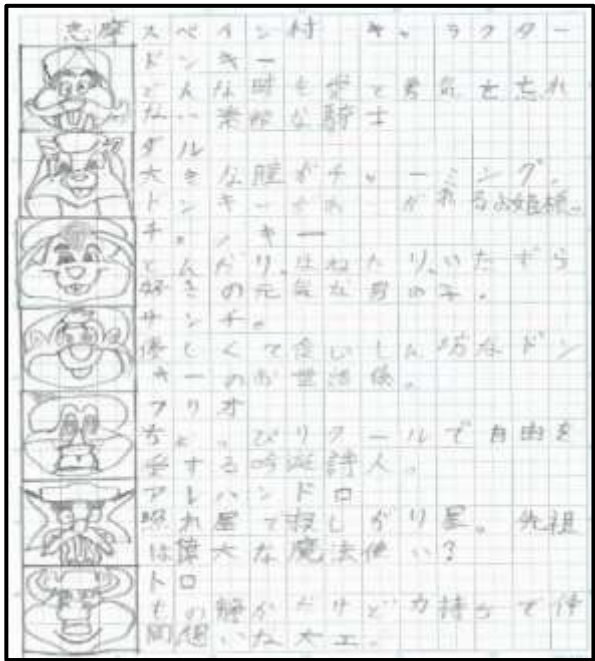 志摩スペイン村 キャラクター
ドンキー
どんな時も愛と勇気を忘れ
ない素敵な騎士
ダル
大きな瞳がチャーミング。
ドンキーがあこがれるお姫様。
チョッキー
とんだり、はねたり、いたずら
好きの元気な男の子。
サンチョ。
優しくて食いしん坊なドン
キーのお世話係。
フリオ
ちょっぴりクールで自由を
愛する吟遊詩人。
アレハンドロ
照れ屋で寂しがり屋。先祖
は偉大な魔法使い?
トロ
もの静かだけど力持ちで仲
間想いな大工。